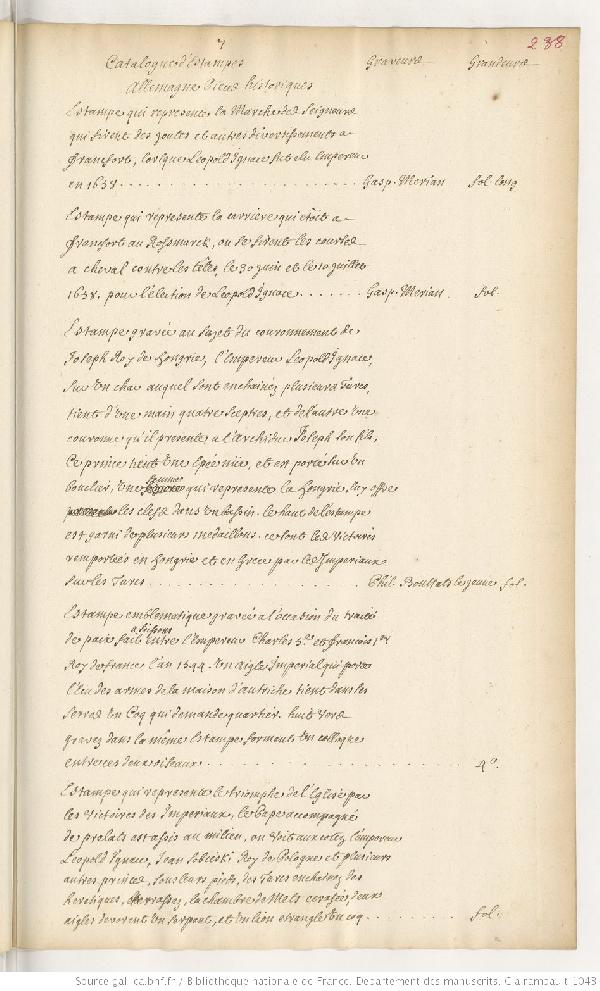 7
288
Catalogue d'Estampes Graveurs Grandeurs
Allemagne Pieces historiques
Estampe qui represente la Marche des Seigneurs
qui firent des joutes et autres divertissements a
francfort, lorsque Leopold Ignace fut elu Empereur
en 1658 . . . . . . . . . . Gasp. Merian fol. long
Estampe qui represente la carriere qui etoit a
francfort au Rossmarck, ou se firent les courses
a cheval contre les têtes, le 30 juin et le 10 juillet
1658. pour l'élection de Leopold Ignace . . . . . . Gasp. Merian. fol.
Estampe gravée au sujet du couronnement de
Joseph Roy de hongrie, l'Empereur Leopold Ignace,
sur un char auquel sont enchainez plusieurs turcs,
tient d'une main quatre sceptres, et de l'autre une
couronne qu'il presente a l'archiduc Joseph son fils,
Ce prince tient une épée nüe, et est porté sur un
bouclier, une femme qui represente la hongrie, luy offre
les clefs dans un bassin. le haut de l'estampe
est garni de plusieurs medaillons. ce sont les victoires
remportées en hongrie et en Grece par les Imperiaux
sur les Turcs . . . . . . . . . . Phil. Bouttats le jeune fol.
Estampe emblematique gravée a l'occasion du traité
de paix fait a Soissons entre l'Empereur Charles 5. et francois 1er
Roy de france l'an 1544. Un aigle Imperial qui porte
l'écu des armes de la maison d'autriche tient dans ses
serres un Coq qui demande quartier. huit vers
gravez dans la même Estampe forment un colloque
entre ces deux oiseaux . . . . . . . . . . 4o.
Estampe qui represente le triomphe de l'Eglise par
les victoires des Imperiaux, le Pape accompagné
de prelats est assis au milieu, on voit aux cotez l'empereur
Leopold Ignace, Jean Sobieski Roy de Pologne et plusieurs
autres princes, sous leurs pieds, des Turcs enchainez, des
heretiques terrassez, la chambre de Metz, deux
aigles devorent un serpent, et un lion etrangle un coq . . . . . . fol.
Source gallica.bnf.fr / Bibliothèque nationale de France. Département des manuscrits. Clairambault 1043